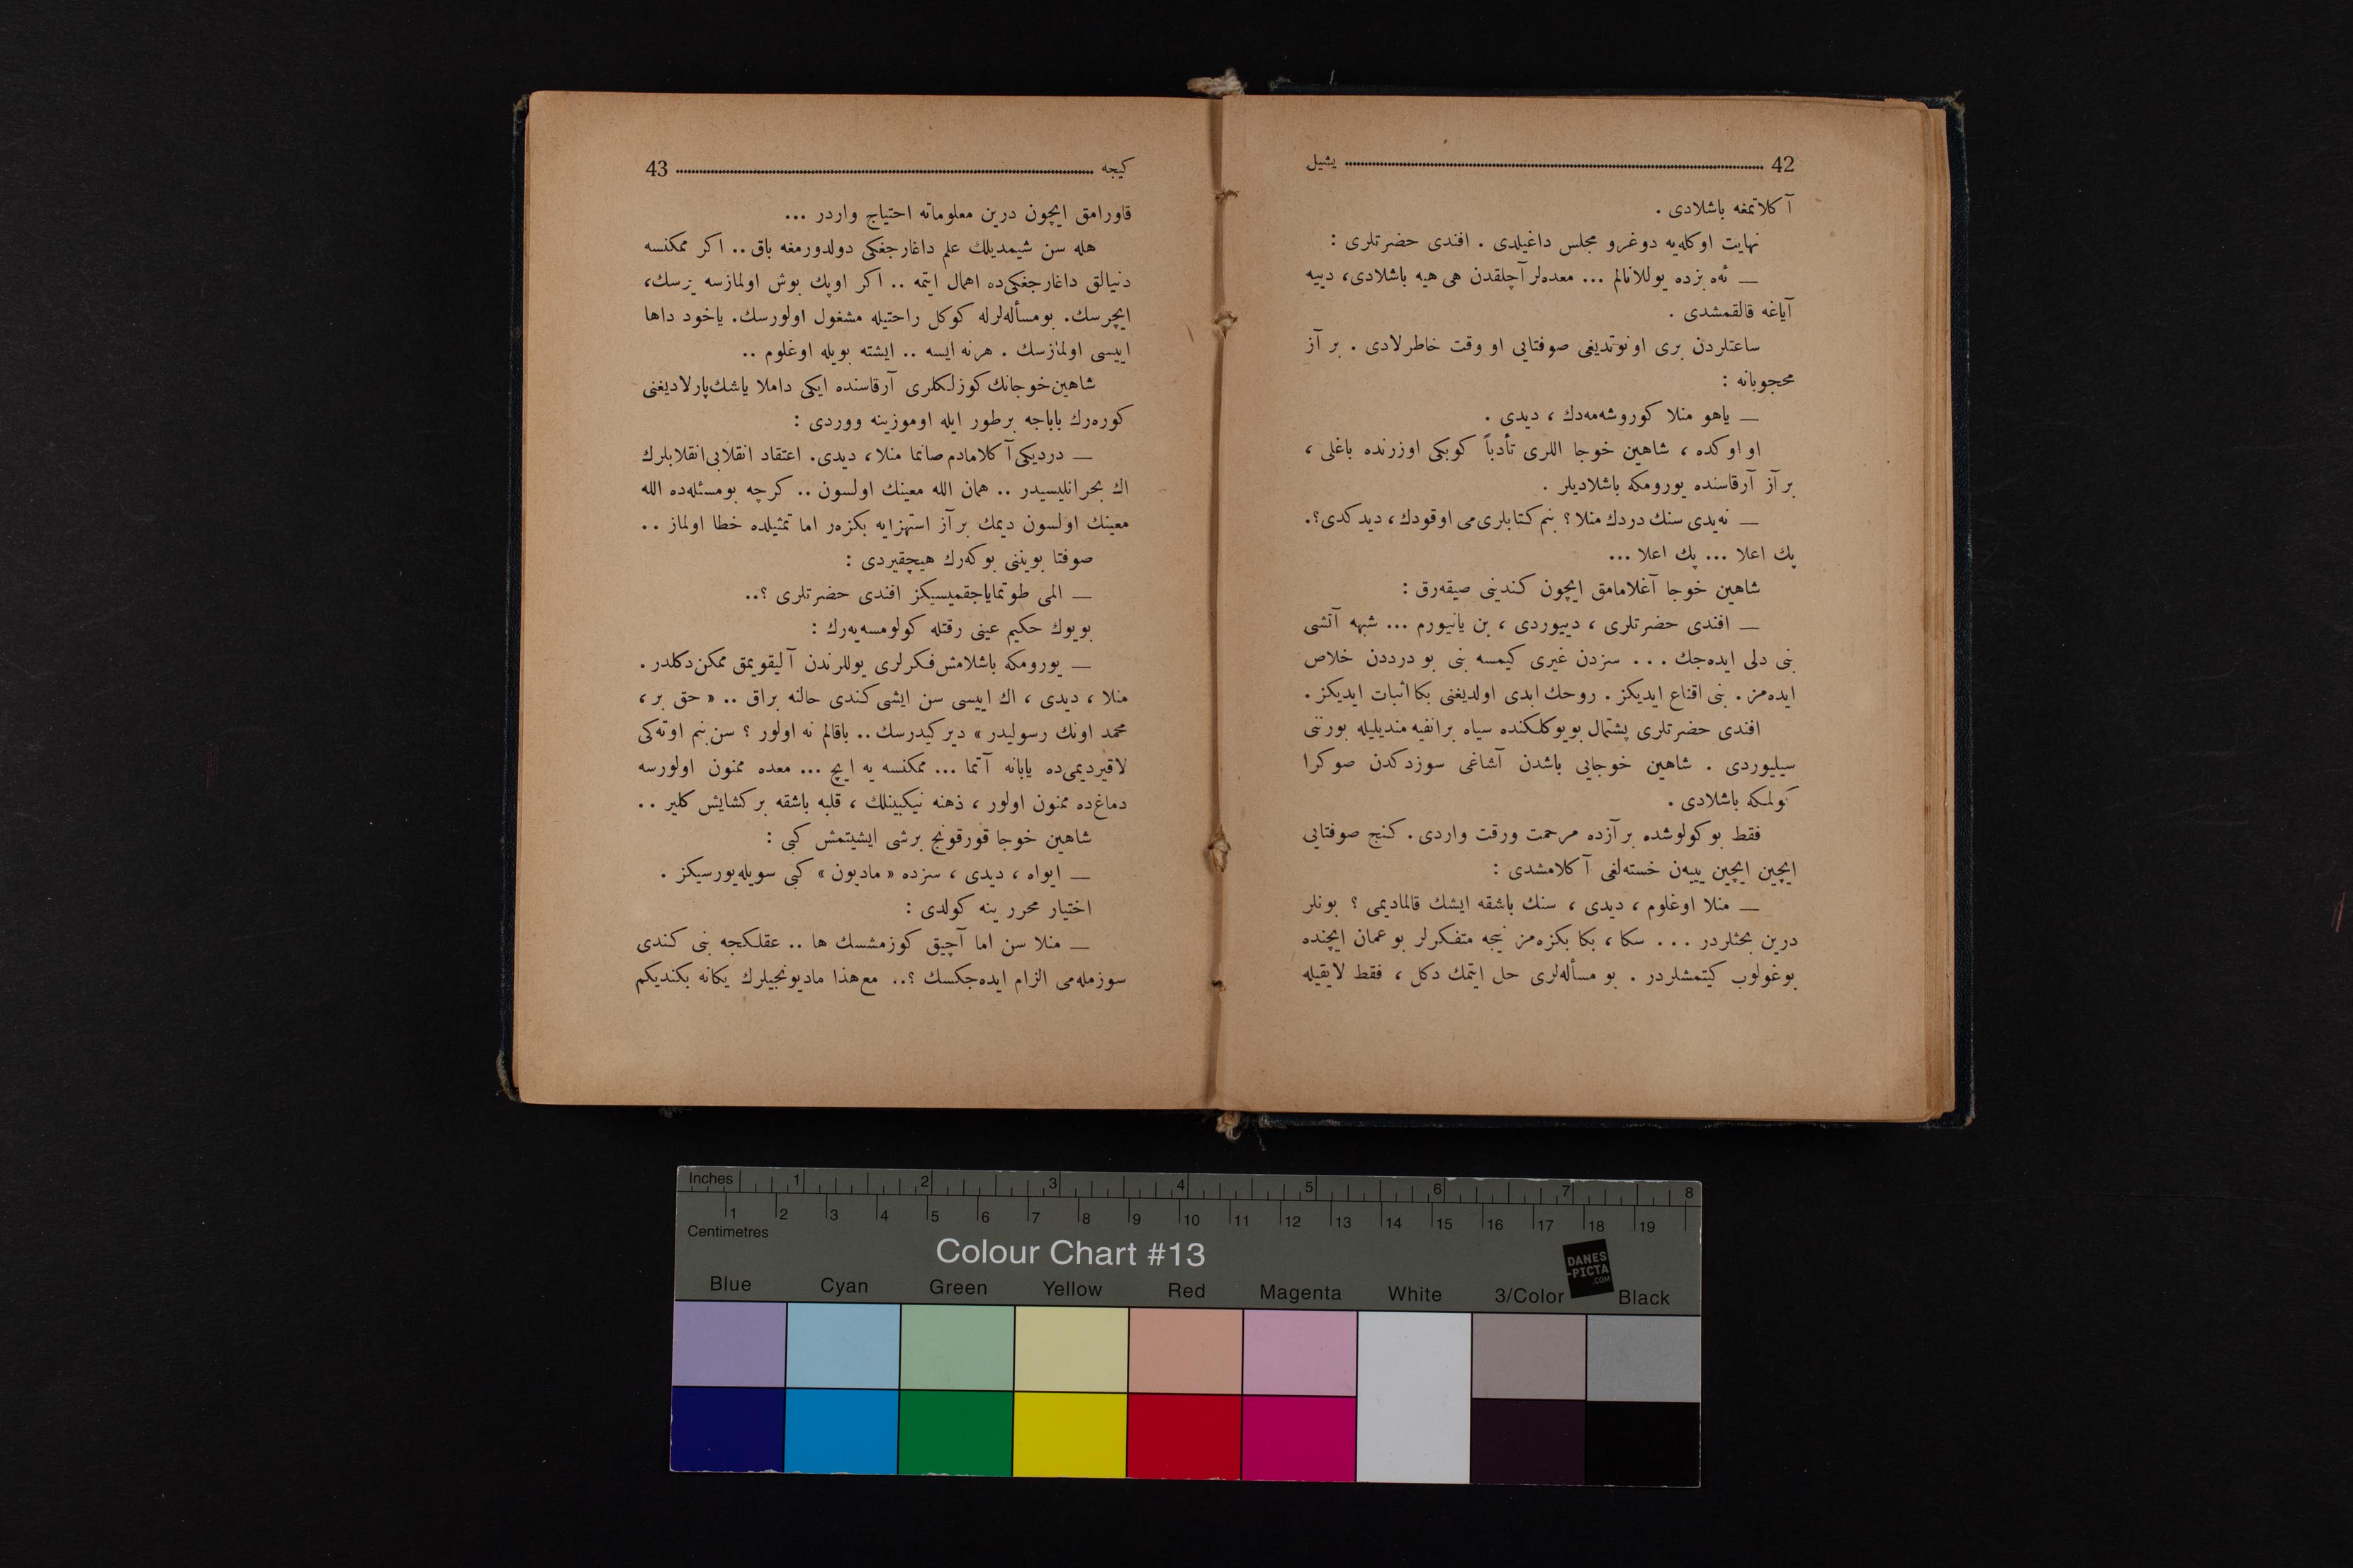 42 يشيل
آكلاتمغه باشلادی .
نهايت اوكله‌يه دوغرو مجلس داغيلدی . افندی حضرتلری :
— ئه بزده يوللانالم ... معده‌لر آچلقدن هی هيه باشلادی، دييه
آياغه قالقمشدی .
ساعتلردن بری اونوتديغی صوفتايی او وقت خاطرلادی . بر آز
محجوبانه :
— ياهو منلا كوروشه‌مه‌دك ، ديدی .
او اوكده ، شاهين خوجا اللری تأدباً كوبكی اوزرنده باغلی ،
بر آز آرقاسنده يورومكه باشلاديلر .
— نه‌يدی سنك دردك منلا ؟ بنم كتابلری‌می اوقودك ، ديدكدی ؟.
پك اعلا ... پك اعلا ...
شاهين خوجا آغلامامق ايچون كندينی صيقه‌رق :
— افندی حضرتلری ، دييوردی ، بن يانيورم ... شبهه آتشی
بنی دلی ايده‌جك ... سزدن غيری كيمسه بنی بو درددن خلاص
ايده‌مز . بنی اقناع ايديكز . روحك ابدی اولديغنی بكا اثبات ايديكز .
افندی حضرتلری پشتمال بويوكلكنده سياه برانفيه منديليله بورننی
سيليوردی . شاهين خوجايی باشدن آشاغی سوزدكدن صوكرا
كولمكه باشلادی .
فقط بو كولوشده بر آزده مرحمت ورقت واردی . كنج صوفتايی
ايچين ايچين يييه‌ن خسته‌لغی آكلامشدی :
— منلا اوغلوم ، ديدی ، سنك باشقه ايشك قالماديمی ؟ بونلر
درين بحثلردر ... سكا ، بكا بكزه‌مز نيجه متفكرلر بو عمان ايچنده
بوغولوب كيتمشلردر . بو مسأله‌لری حل ايتمك دكل ، فقط لايقيله
كيجه 43
قاورامق ايچون درين معلوماته احتياج واردر ...
هله سن شيمديلك علم داغارجغكی دولدورمغه باق .. اكر ممكنسه
دنيالق داغارجغكی‌ده اهمال ايتمه .. اكر اوپك بوش اولمازسه يرسك،
ايچرسك. بومسأله‌لرله كوكل راحتيله مشغول اولورسك. ياخود داها
اييسی اولمازسك . هرنه ايسه .. ايشته بويله اوغلوم ..
شاهين خوجانك كوزلكلری آرقاسنده ايكی داملا ياشك پارلاديغنی
كوره‌رك باباجه برطور ايله اوموزينه ووردی :
— درديكی آكلامادم صانما منلا ، ديدی. اعتقاد انقلابی انقلابلرك
اك بحرانليسيدر .. همان الله معينك اولسون .. كرچه بومسئله‌ده الله
معينك اولسون ديمك بر آز استهزايه بكزه‌ر اما تمثيلده خطا اولماز ..
صوفتا بويننی بوكه‌رك هيچقيردی :
— المی طوتماياجقميسيكز افندی حضرتلری ؟..
بويوك حكيم عينی رقتله كولومسه‌يه‌رك :
— يورومكه باشلامش فكرلری يوللرندن آليقويمق ممكن دكلدر .
منلا ، ديدی ، اك اييسی سن ايشی كندی حالنه براق .. « حق بر ،
محمد اونك رسوليدر » دير كيدرسك .. باقالم نه اولور ؟ سن بنم اوته‌كی
لاقيرديمی‌ده يابانه آتما ... ممكنسه يه ايچ ... معده ممنون اولورسه
دماغ‌ده ممنون اولور ، ذهنه نيكبينلك ، قلبه باشقه بر كشايش كلير ..
شاهين خوجا قورقونج برشی ايشيتمش كبی :
— ايواه ، ديدی ، سزده « ماديون » كبی سويله‌يورسيكز .
اختيار محرر ينه كولدی :
— منلا سن اما آچيق كوزمشسك ها .. عقلكجه بنی كندی
سوزمله‌می الزام ايده‌جكسك ؟.. مع‌هذا ماديونجيلرك يكانه بكنديكم
Inches 1 2 3 4 5 6 7 8
1 2 3 4 5 6 7 8 9 10 11 12 13 14 15 16 17 18 19
Centimetres
Colour Chart #13
DANES
-PICTA
.COM
Blue Cyan Green Yellow Red Magenta White 3/Color Black